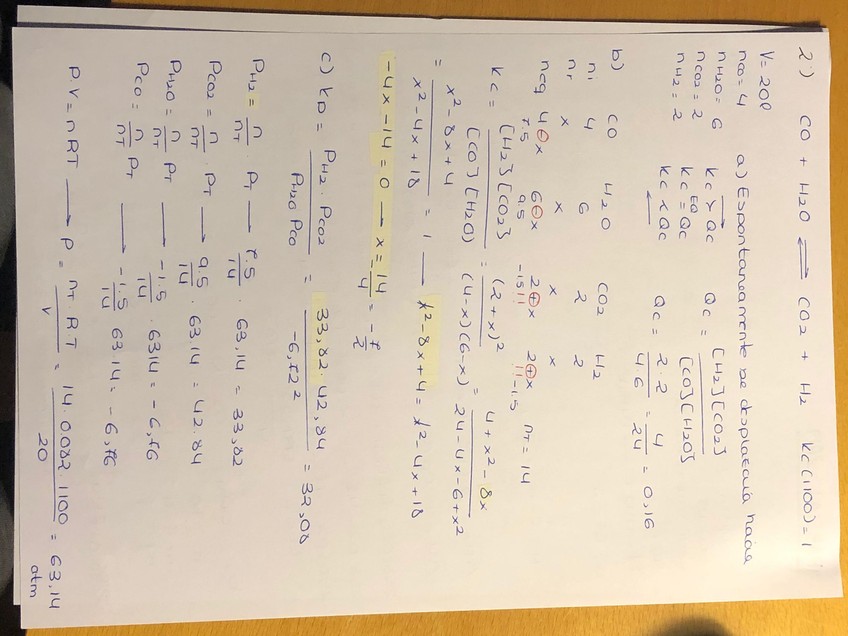 2.) CO + H2O ⇌ CO2 + H2 Kc(1100) = 1
V = 20l
nco = 4 a) Espontaneamente se desplazará hacia
nH2O = 6 Kc > Qc → Qc = [H2][CO2] / [CO][H2O]
nCO2 = 2 Kc = Qc EQ
nH2 = 2 Kc < Qc ← Qc = 2·2 / 4·6 = 4/24 = 0,16
b) CO H2O CO2 H2
ni 4 6 2 2
nr x x x x
neq 4⊖x 6⊖x 2⊕x 2⊕x nT = 14
7.5 9.5 -1.5 -1.5
Kc = [H2][CO2] / [CO][H2O] = (2+x)^2 / (4-x)(6-x) = 4 + x^2 - 8x / 24 - 4x - 6 + x^2
= x^2 - 8x + 4 / x^2 - 4x + 18 = 1 → x^2 - 8x + 4 = x^2 - 4x + 18
-4x - 14 = 0 → x = 14 / -4 = -7/2
c) KP = PH2 · PCO2 / PH2O PCO = 33,82 · 42,84 / -6,76^2 = 32,08
PH2 = n/nT · PT → 7.5/14 · 63,14 = 33,82
PCO2 = n/nT · PT → 9.5/14 · 63,14 = 42.84
PH2O = n/nT PT → -1.5/14 · 63 14 = -6,76
PCO = n/nT PT → -1.5/14 63 14 = -6,76
P·V = n RT → P = nT R T / V = 14 · 0,082 · 1100 / 20 = 63,14 atm